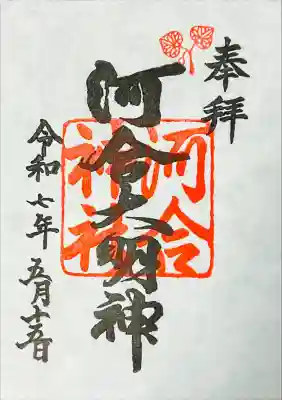 奉拝
河合大明神
河合
神社
令和七年 五月十五日